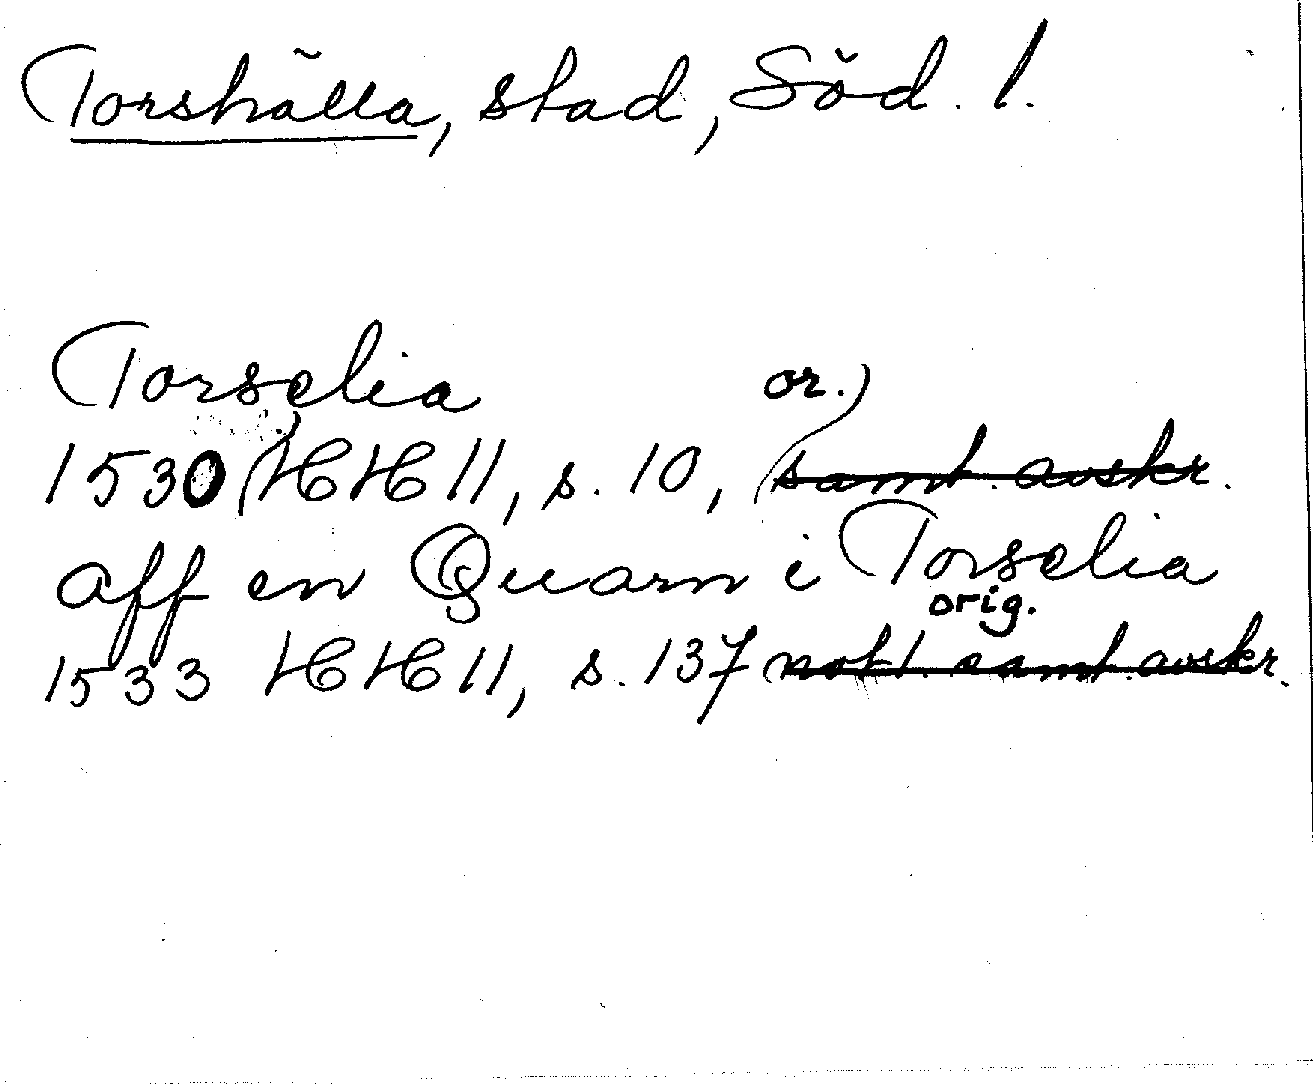 Torshälla, stad, Söd. l.
Torselia
or.)
1530 (HH 11, s. 10, samt. avskr.
aff en Quarn i Torselia
orig.
1533 HH 11, s. 137 samt. avskr.